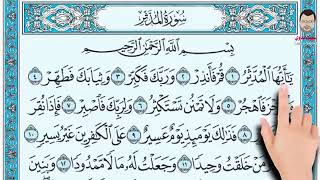 سُورَةُ المُدَّثِّرِ
بِسْمِ اللَّهِ الرَّحْمَٰنِ الرَّحِيمِ
يَا أَيُّهَا الْمُدَّثِّرُ ١ قُمْ فَأَنذِرْ ٢ وَرَبَّكَ فَكَبِّرْ ٣ وَثِيَابَكَ فَطَهِّرْ ٤
فَاهْجُرْ ٥ وَلَا تَمْنُن تَسْتَكْثِرُ ٦ وَلِرَبِّكَ فَاصْبِرْ ٧ فَإِذَا نُقِرَ
٨ فَذَٰلِكَ يَوْمَئِذٍ يَوْمٌ عَسِيرٌ ٩ عَلَى الْكَافِرِينَ غَيْرُ يَسِيرٍ ١٠
وَمَنْ خَلَقْتُ وَحِيدًا ١١ وَجَعَلْتُ لَهُ مَالًا مَّمْدُودًا ١٢ وَبَنِينَ